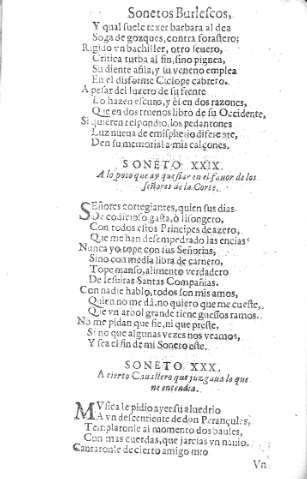 Sonetos Burlescos,
Y qual suele texer barbara aldea
Soga de gozques, contra forastero;
Rigido vn bachiller, otro seuero,
Critica turba al fin, sino pignea,
Su diente afila, y su veneno emplea
En el disforme Ciclope cabrero.
A pesar del luzero de su frente
Lo hazen escuro, y èl en dos razones,
Que en dos truenos libro de su Occidente,
Si quieren respondro, los pedantones
Luz nueua de emispherio diferente,
Den su memorial a mis calçones.
SONETO XXIX.
A lo poco que ay que fiar en el fauor de los
señores de la Corte.
SEñores cortegiantes, quien sus dias
De codicioso gasta, ò lisongero,
Con todos estos Principes de azero,
Que me han desempedrado las encias?
Nunca yo tope con sus Señorias,
Sino con media libra de carnero,
Tope manso, alimento verdadero
De Iesuitas Santas Compañias.
Con nadie hablo, todos son mis amos,
Quien no me dá, no quiero que me cueste,
Que vn arbol grande tiene gruessos ramos.
No me pidan que fie, ni que preste,
Si no que algunas vezes nos veamos,
Y sea el fin de mi Soneto este.
SONETO XXX.
A cierto Cauallero que juzgaua lo que
no entendia.
MVsica le pidio ayer su aluedrio
A vn descendiente de don Perançules,
Templaronle al momento dos baules,
Con mas cuerdas, que jarcias vn nauio.
Cantaronle de cierto amigo mio
Vn